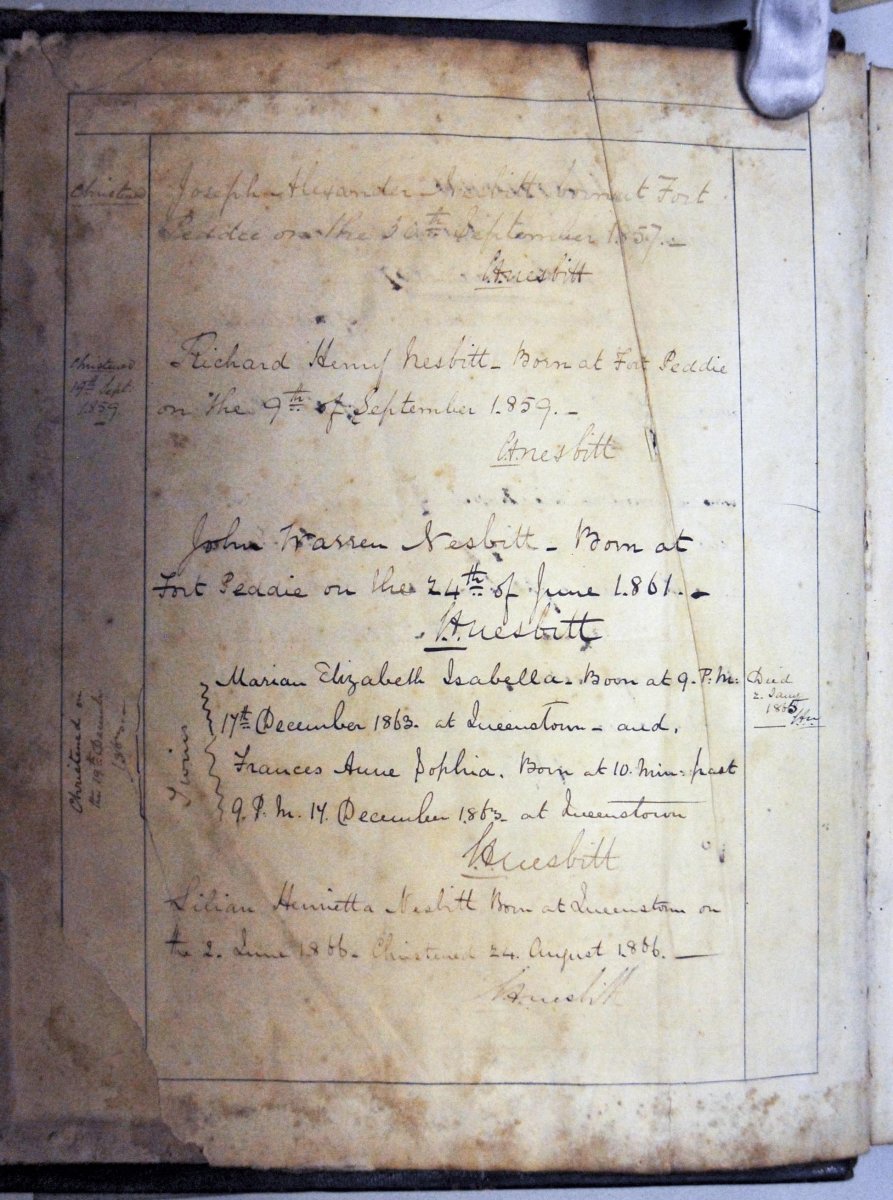 Christened
Joseph Alexander Nesbitt born at Fort
Peddie on the 30th September 1857. -
Nesbitt
Christened
19th Sept.
1859
Richard Henry Nesbitt - Born at Fort Peddie
on the 9th of September 1859. -
Nesbitt
John Warren Nesbitt - Born at
Fort Peddie on the 24th of June 1861. -
Nesbitt
Christened on
the 19th December
1863
Twins
Marian Elizabeth Isabella - Born at 9. P. M:
17th December 1863. at Queenstown - and,
Frances Anne Sophia. Born at 10. Min: past
9. P. M. 17. December 1863. at Queenstown
Nesbitt
Died
1865
Lilian Henrietta Nesbitt Born at Queenstown on
the 2. June 1866. Christened 24. August 1866. —
Nesbitt